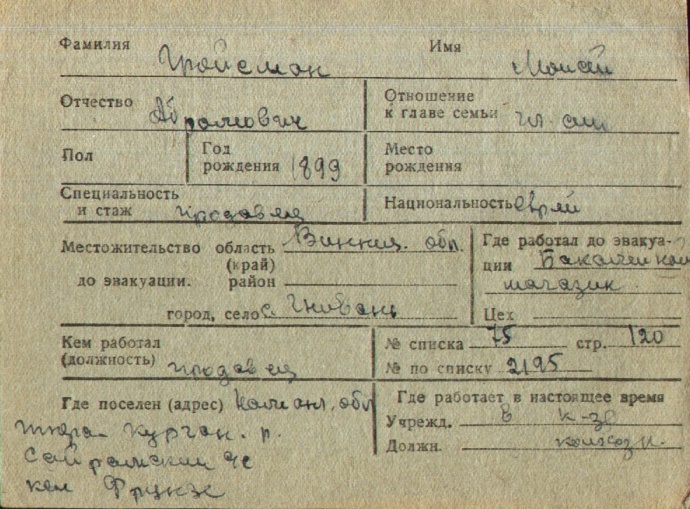 Фамилия Гройсман Имя Моисей
Отчество Абрамович
Отношение
к главе семьи гл. сем
Пол
Год
рождения 1899
Место
рождения
Специальность
и стаж продавец
Национальность еврей
Местожительство область Винниц. обл.
(край)
до эвакуации. район
город, село с. Гнивань
Где работал до эвакуа-
ции
магазин
Цех
Кем работал
(должность) продавец
№ списка 75 стр. 120
№ по списку 2195
Где поселен (адрес) обл
Курган. р.
с
Фрунзе
Где работает в настоящее время
Учрежд. в к-зе
Должн. колхозн.